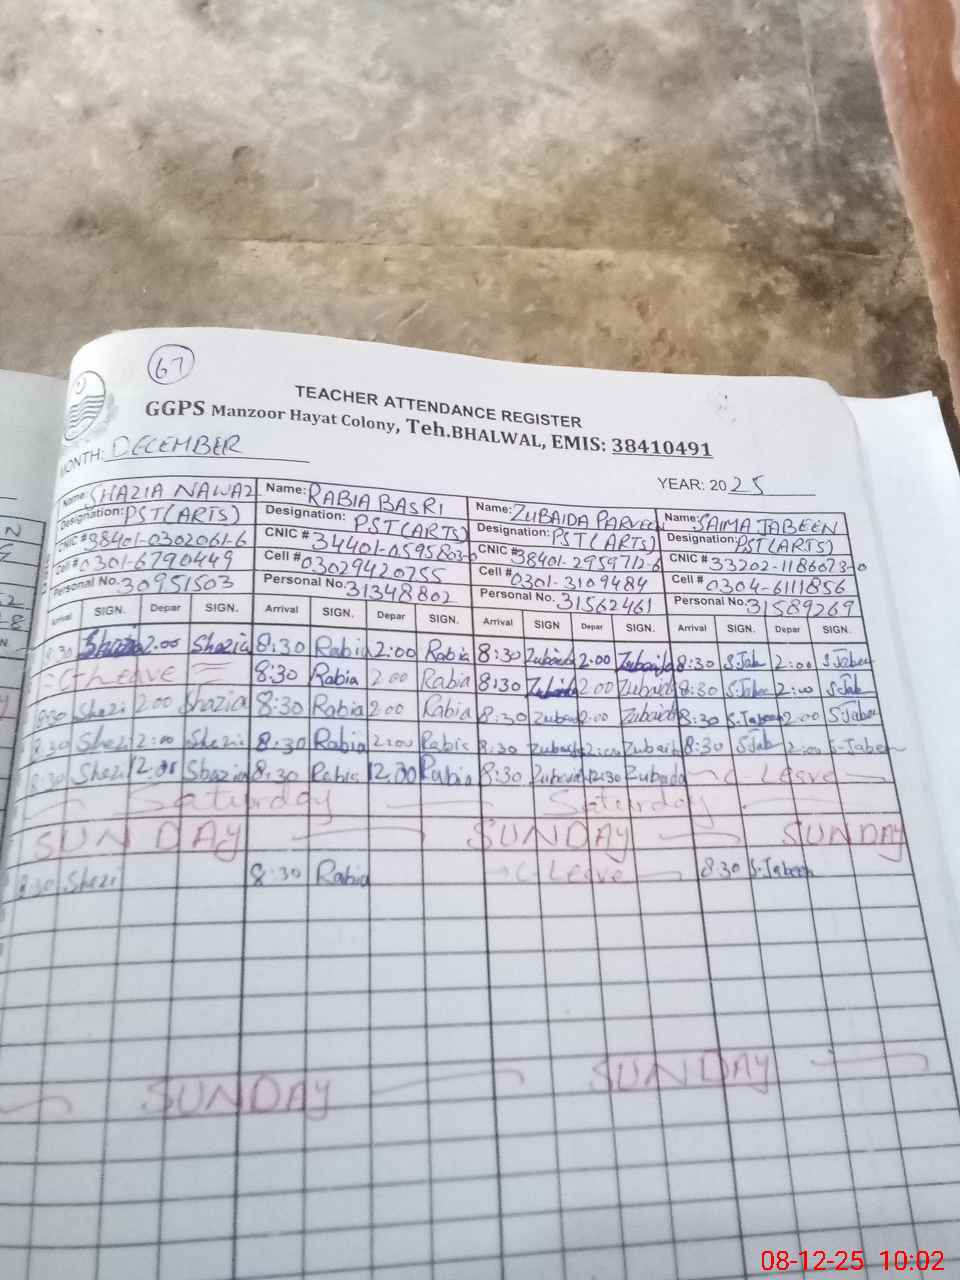 67
TEACHER ATTENDANCE REGISTER
GGPS Manzoor Hayat Colony, Teh.BHALWAL, EMIS: 38410491
MONTH: DECEMBER
YEAR: 2025
Name: SHAZIA NAWAZ Name: RABIA BASRI Name: ZUBAIDA PARVEEN Name: SAIMA JABEEN
Designation: PST(ARTS) Designation: PST(ARTS) Designation: PST(ARTS) Designation: PST(ARTS)
CNIC # 38401-0302061-6 CNIC # 34401-0595803-0 CNIC # 38401-2959712-6 CNIC # 33202-1186073-0
Cell # 0301-6790449 Cell # 03029420755 Cell # 0301-3109484 Cell # 0304-6111856
Personal No. 30951503 Personal No. 31348802 Personal No. 31562461 Personal No. 31589269
SIGN. Depar SIGN. Arrival SIGN. Depar SIGN. Arrival SIGN. Depar SIGN. Arrival SIGN. Depar SIGN.
8:30 Shazia 2:00 Shazia 8:30 Rabia 2:00 Rabia 8:30 Zubaida 2:00 Zubaida 8:30 S.Jab 2:00 S.Jabeen
C-Leave 8:30 Rabia 2:00 Rabia 8:30 Zubaida 2:00 Zubaida 8:30 S.Jabee 2:00 S.Jab
8:30 Shazi 2:00 Shazia 8:30 Rabia 2:00 Rabia 8:30 Zubai 2:00 Zubaida 8:30 S.Jabeen 2:00 S.Jabeen
8:30 Shezi 2:00 Shezi 8:30 Rabia 2:00 Rabia 8:30 Zubaida 2:00 Zubaida 8:30 S.Jab 2:00 S-Jabeen
8:30 Shezi Shazia 8:30 Rabia 12.30 Rabia 8:30 Zubaida 12:30 Zubaida C-Leave
Saturday Saturday
SUNDAY SUNDAY SUNDAY
8:30 Shezi 8:30 Rabia C-Leave 8:30 S.Jabeen
SUNDAY SUNDAY
08-12-25 10:02